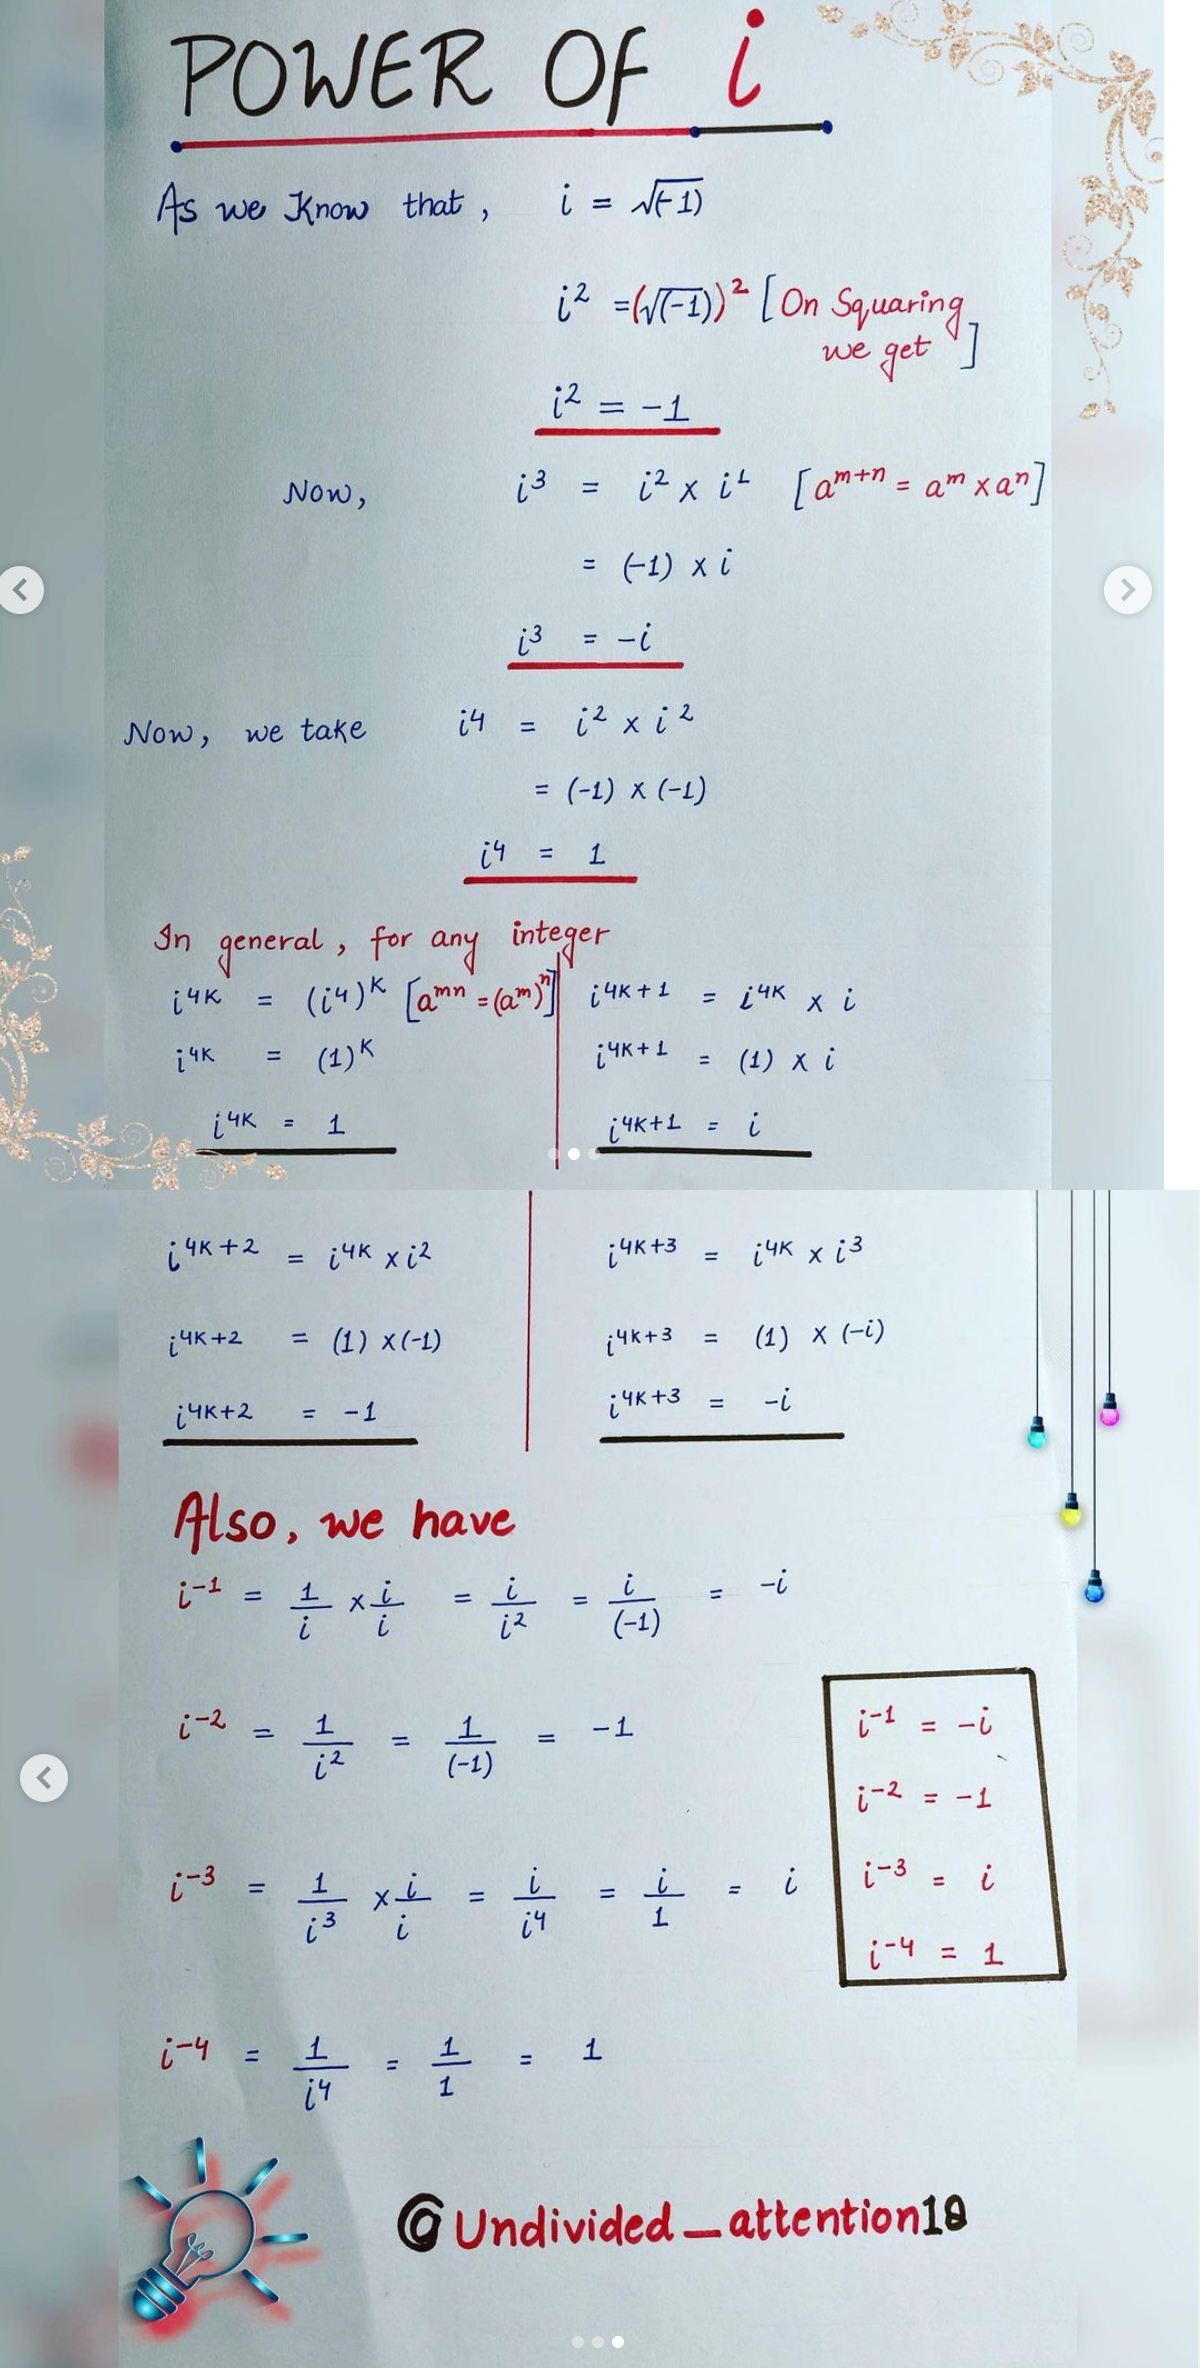 POWER OF i
As we Know that, i = √(-1)
i² = (√(-1))² [On Squaring
we get]
i² = -1
Now, i³ = i² x i¹ [aᵐ⁺ⁿ = aᵐ x aⁿ]
= (-1) x i
i³ = -i
Now, we take i⁴ = i² x i²
= (-1) x (-1)
i⁴ = 1
In general, for any integer
i⁴ᴷ = (i⁴)ᴷ [aᵐⁿ = (aᵐ)ⁿ]
i⁴ᴷ = (1)ᴷ
i⁴ᴷ = 1
i⁴ᴷ⁺¹ = i⁴ᴷ x i
i⁴ᴷ⁺¹ = (1) x i
i⁴ᴷ⁺¹ = i
i⁴ᴷ⁺² = i⁴ᴷ x i²
i⁴ᴷ⁺² = (1) x (-1)
i⁴ᴷ⁺² = -1
i⁴ᴷ⁺³ = i⁴ᴷ x i³
i⁴ᴷ⁺³ = (1) x (-i)
i⁴ᴷ⁺³ = -i
Also, we have
i⁻¹ = 1/i x i/i = i/i² = i/(-1) = -i
i⁻² = 1/i² = 1/(-1) = -1
i⁻³ = 1/i³ x i/i = i/i⁴ = i/1 = i
i⁻⁴ = 1/i⁴ = 1/1 = 1
i⁻¹ = -i
i⁻² = -1
i⁻³ = i
i⁻⁴ = 1
@Undivided_attention18